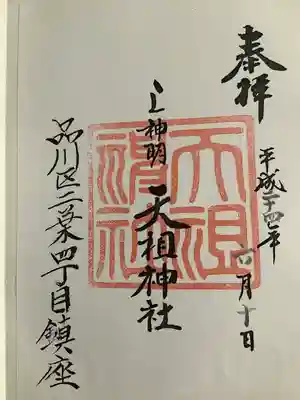 奉拝
平成二十四年
六月十日
上神明
天祖神社
天祖神社
品川区二葉四丁目鎮座